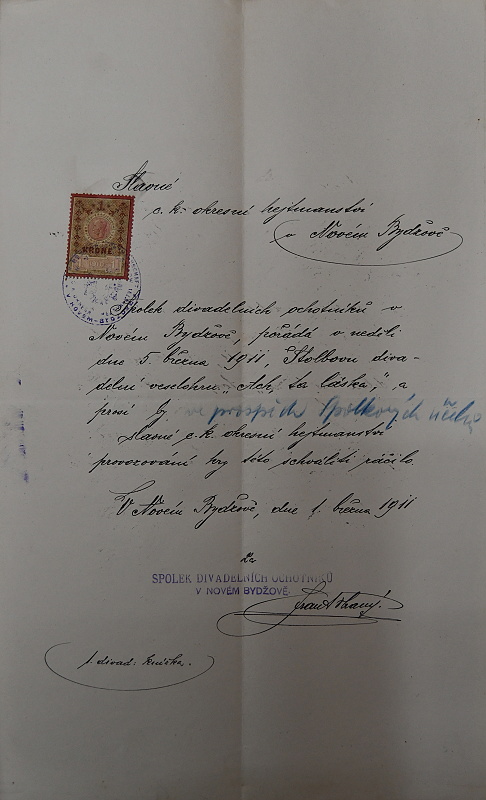 Slavné
c. k. okresní hejtmanství
v Novém Bydžově
KRONE
V NOVÉM-BYDŽOVĚ
Spolek divadelních ochotníků v
Novém Bydžově, pořádá v neděli
dne 5. března 1911, Štolbovu diva-
delní veselohru "Ach ta láska", a
prosí by ve prospěch spolkových účelů
slavné c. k. okresní hejtmanství
provozování hry této schváliti ráčilo.
V Novém Bydžově, dne 1. března 1911
Za
SPOLEK DIVADELNÍCH OCHOTNÍKŮ
V NOVÉM BYDŽOVĚ.
1. divad: knížka.